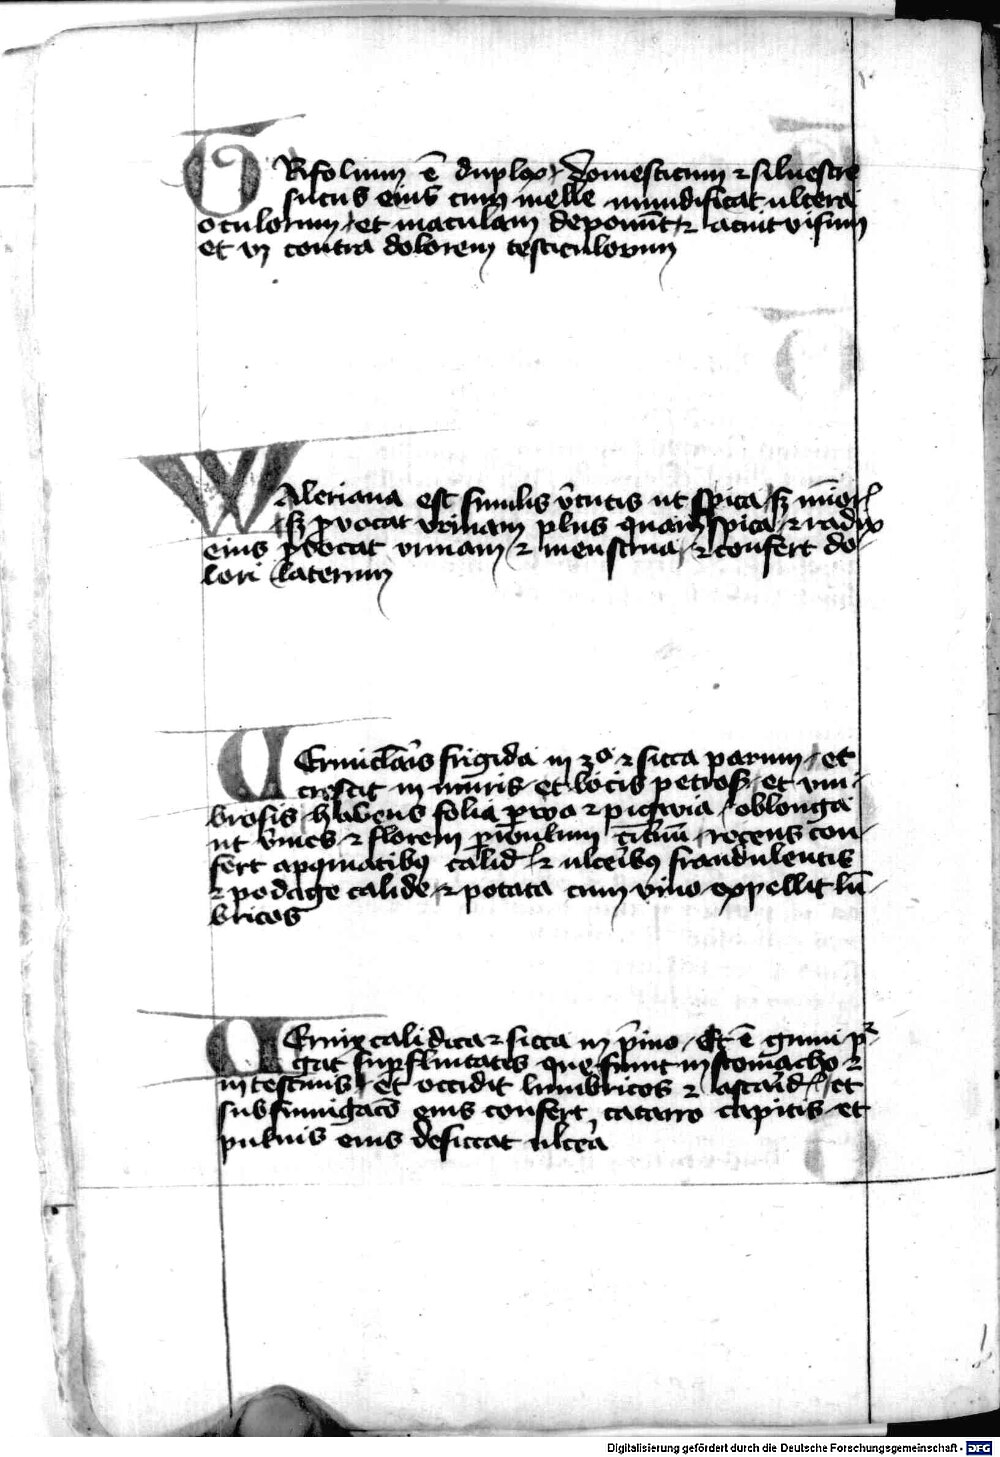 TRifolium ē duplex domesticum ⁊ siluestre
sucus eius cum melle mundificat ulcera
oculorum et maculam deponūt ⁊ acuit visum
et vꝫ contra dolorem testiculorum
WAleriana est similis v̓tutis ut spica sꝫ
sꝫ ꝓvocat vrinam plus quam spica ⁊ radix
eius ꝓvocat vrinam ⁊ menstrua ⁊ confert do-
lori laterum
VErmiclaīs frigida in 3ᵒ ⁊ sicca parum et
crescit in muris et locis petros et um-
brosis habens folia parva ⁊ oblonga
ut v̓mes ⁊ florem recens con-
fert apꝰmatibꝰ calid ⁊ ulcēibꝰ fraudulentis
⁊ podage calide ⁊ potata cum vino expellit lū-
bricos
VErnix calidica ⁊ sicca in p̄ino Et ē gumi pꝛ-
gat suꝑfluitates que sunt in stomacho ⁊
intestinis et occidit lumbricos ⁊ ascarid et
subfumigacō eius confert catarro capitis et
puluis eius desiccat ulcēa
Digitalisierung gefördert durch die Deutsche Forschungsgemeinschaft - DFG